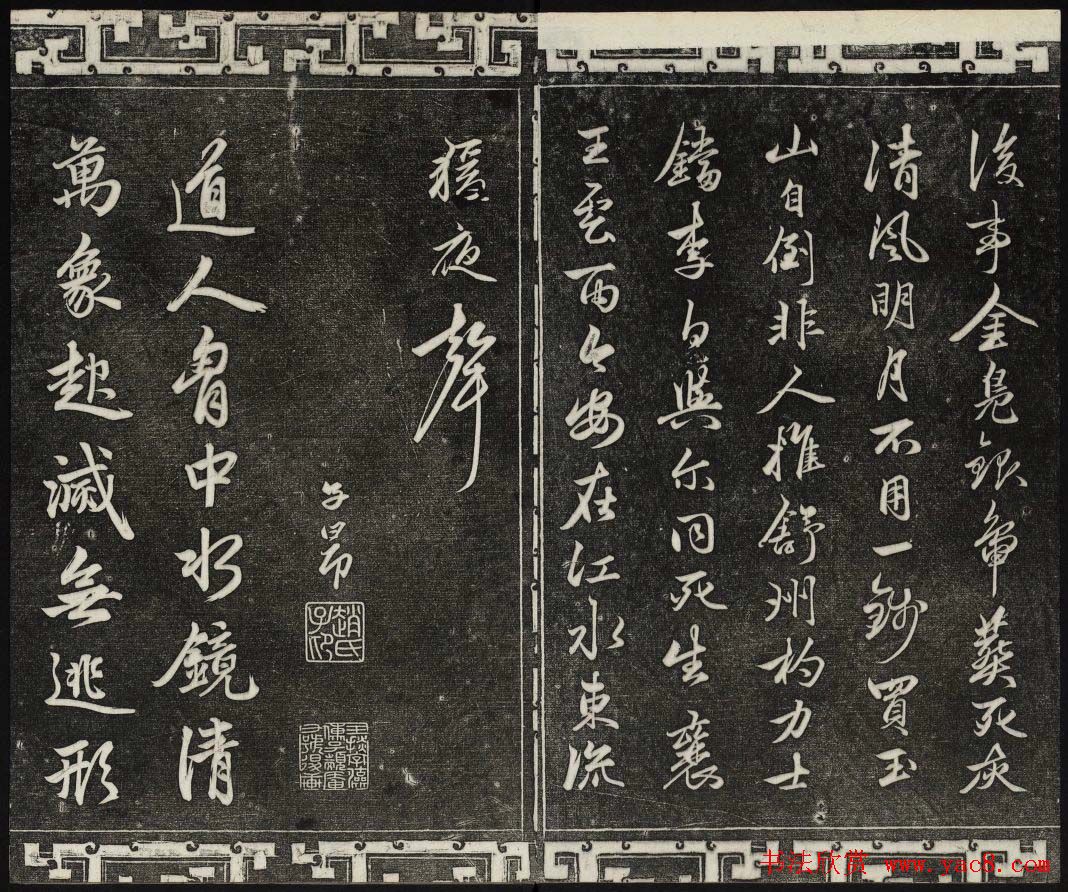 後事金鳧銀龜葬死灰
清風明月不用一錢買玉
山自倒非人推舒州杓力士
鐺李白與尔同死生襄
王雲雨今安在江水東流
猿夜聲
子昂
趙氏子印
道人胷中水鏡清
萬象起滅無逃形
书法欣赏 www.yac8.com